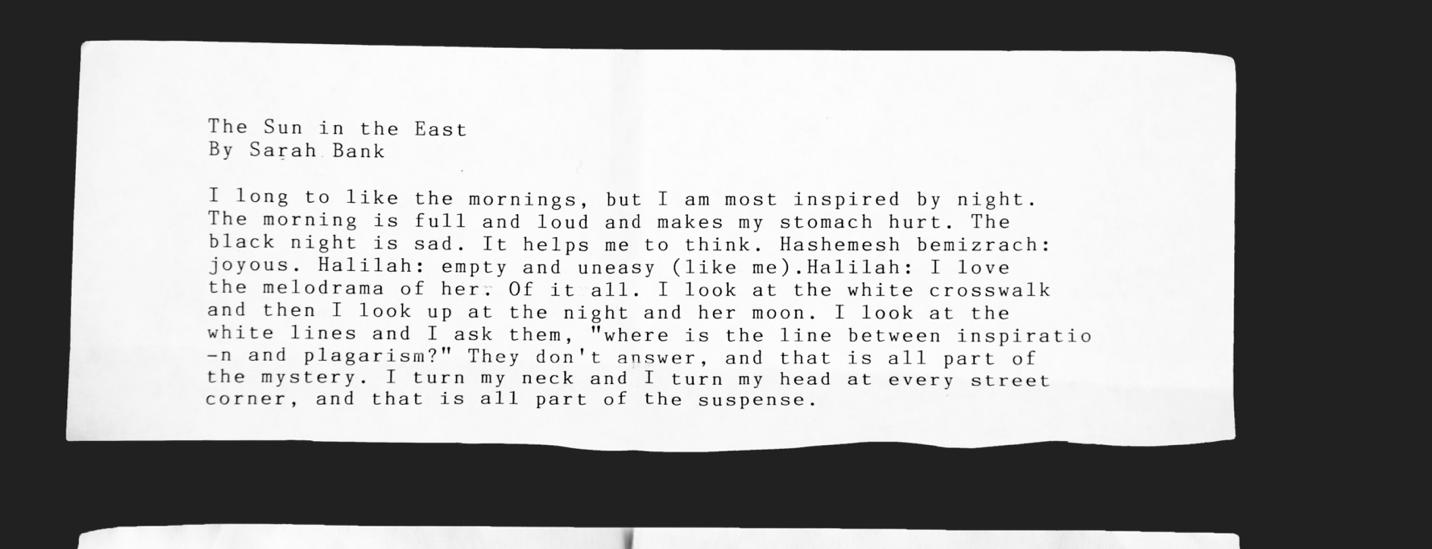 The Sun in the East
By Sarah Bank
I long to like the mornings, but I am most inspired by night.
The morning is full and loud and makes my stomach hurt. The
black night is sad. It helps me to think. Hashemesh bemizrach:
joyous. Halilah: empty and uneasy (like me).Halilah: I love
the melodrama of her. Of it all. I look at the white crosswalk
and then I look up at the night and her moon. I look at the
white lines and I ask them, "where is the line between inspiratio
-n and plagarism?" They don't answer, and that is all part of
the mystery. I turn my neck and I turn my head at every street
corner, and that is all part of the suspense.